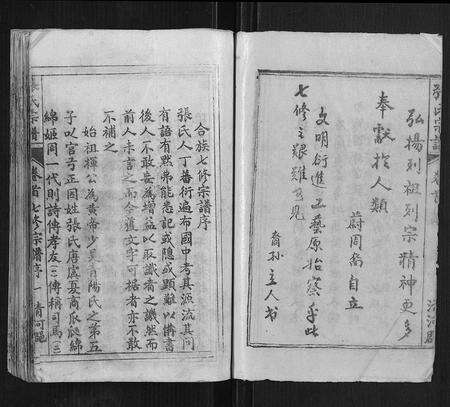 弘揚列祖列宗精神更多
奉獻於人類
蔚周喬自立
文明衍進工藝原始察乎此
七修之艱難可見
裔孫主人书
張氏宗譜
卷首
合族七修宗譜序
張氏人丁蕃衍遍布國中考其源流其間
有語有默弗能悉記或隱或顯難以備書
後人不敢妄為增益以取譏者之譏然而
前人未言之而今舊文字可據者亦不敢
不補之
始祖揮公為黃帝少昊青陽氏之第五
子以官弓正因姓張氏唐虞夏商瓜瓞綿
綿姬周一代則詩傳孝友三傳稱司馬
張氏宗譜
卷首七修宗譜序
一
清河郡